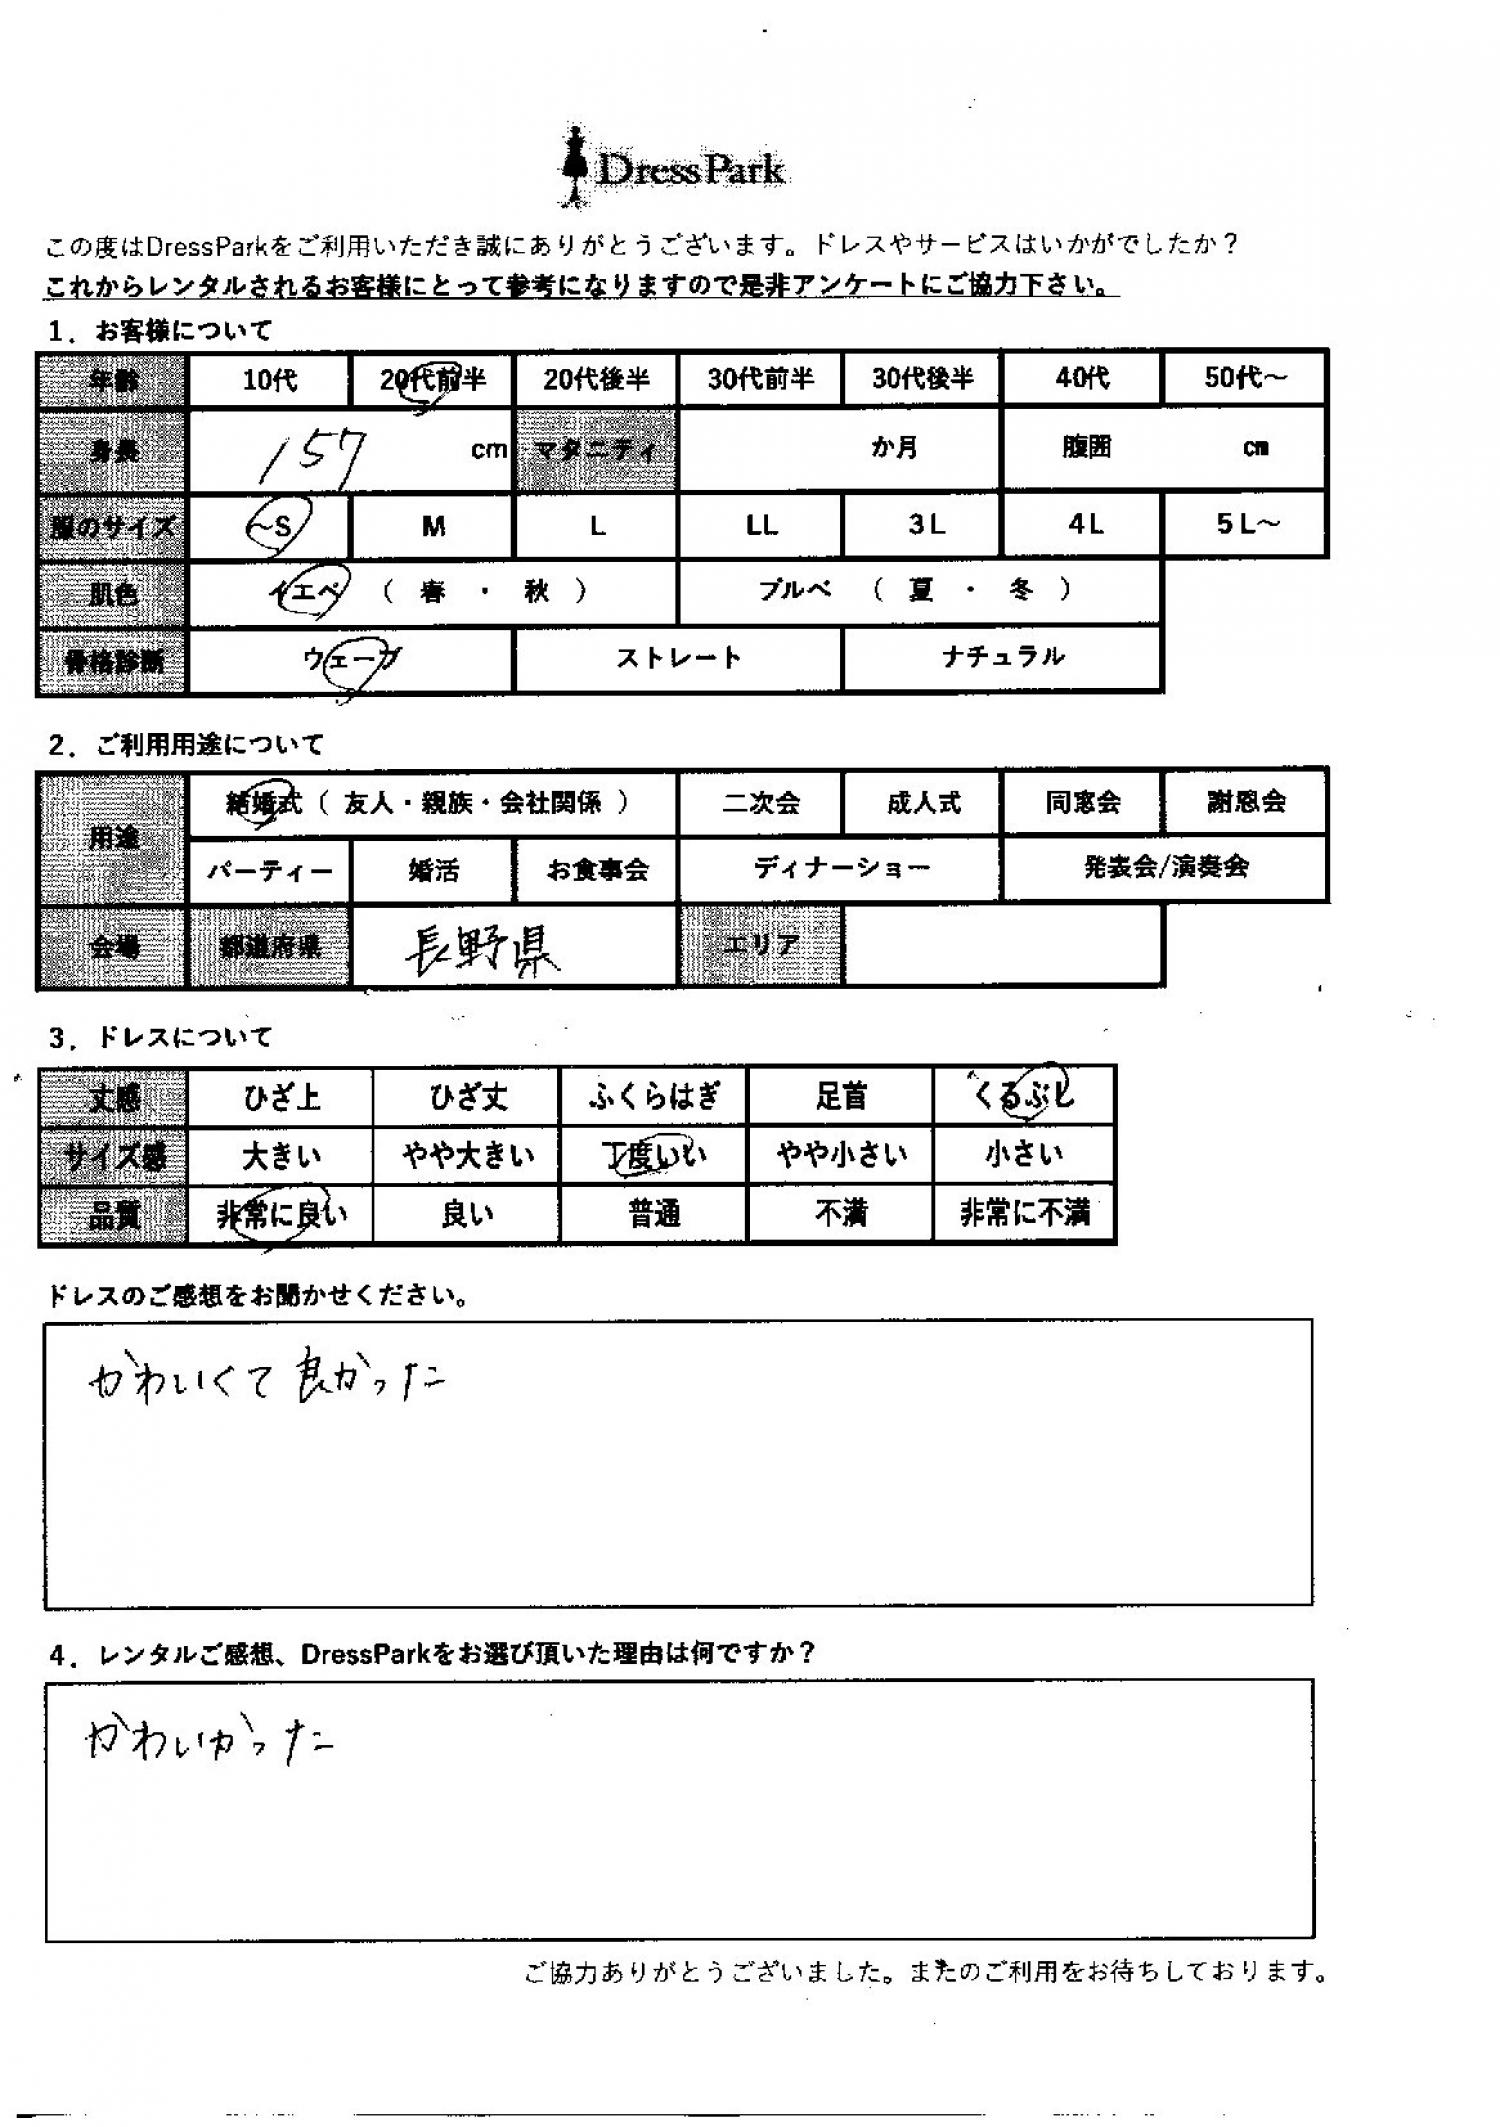 DressPark
この度はDressParkをご利用いただき誠にありがとうございます。ドレスやサービスはいかがでしたか？
これからレンタルされるお客様にとって参考になりますので是非アンケートにご協力下さい。
1．お客様について
年齢 10代 20代前半 20代後半 30代前半 30代後半 40代 50代～
身長 157 cm マタニティ か月 腹囲 cm
服のサイズ ～S M L LL 3L 4L 5L～
肌色 イエベ （ 春 ・ 秋 ） ブルベ （ 夏 ・ 冬 ）
骨格診断 ウェーブ ストレート ナチュラル
2．ご利用用途について
用途 結婚式（ 友人・親族・会社関係 ） 二次会 成人式 同窓会 謝恩会
パーティー 婚活 お食事会 ディナーショー 発表会/演奏会
会場 都道府県 長野県 エリア
3．ドレスについて
丈感 ひざ上 ひざ丈 ふくらはぎ 足首 くるぶし
サイズ感 大きい やや大きい 丁度いい やや小さい 小さい
品質 非常に良い 良い 普通 不満 非常に不満
ドレスのご感想をお聞かせください。
かわいくて良かった
4．レンタルご感想、DressParkをお選び頂いた理由は何ですか？
かわいかった
ご協力ありがとうございました。またのご利用をお待ちしております。